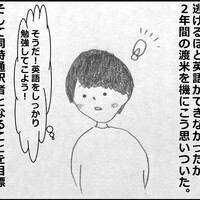 逃げるほど英語ができなかったが
２年間の渡米を機にこう思いついた。
そうだ！英語をしっかり
勉強してこよう！
そして同時通訳者となることを目標